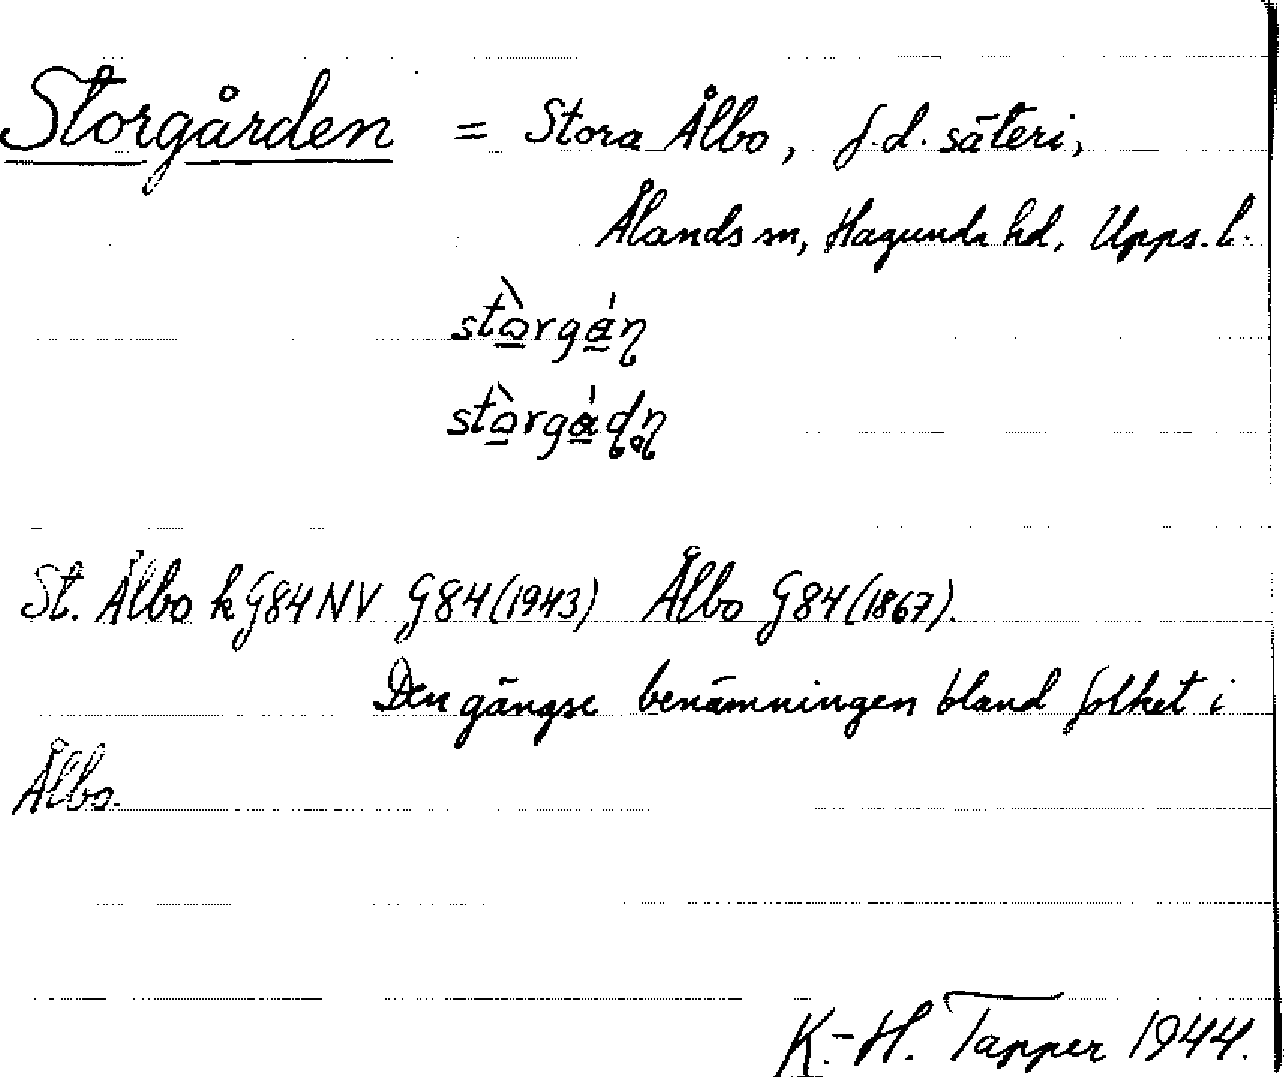 Storgården = Stora Ålbo, f.d. säteri,
Ålands sn, Hagunda hd, Upps. l.
stòrgán
stòrgádn
St. Ålbo k G84NV G84(1943) Ålbo G84(1867).
Den gängse benämningen bland folket i
Ålbo.
K.-H. Tapper 1944.